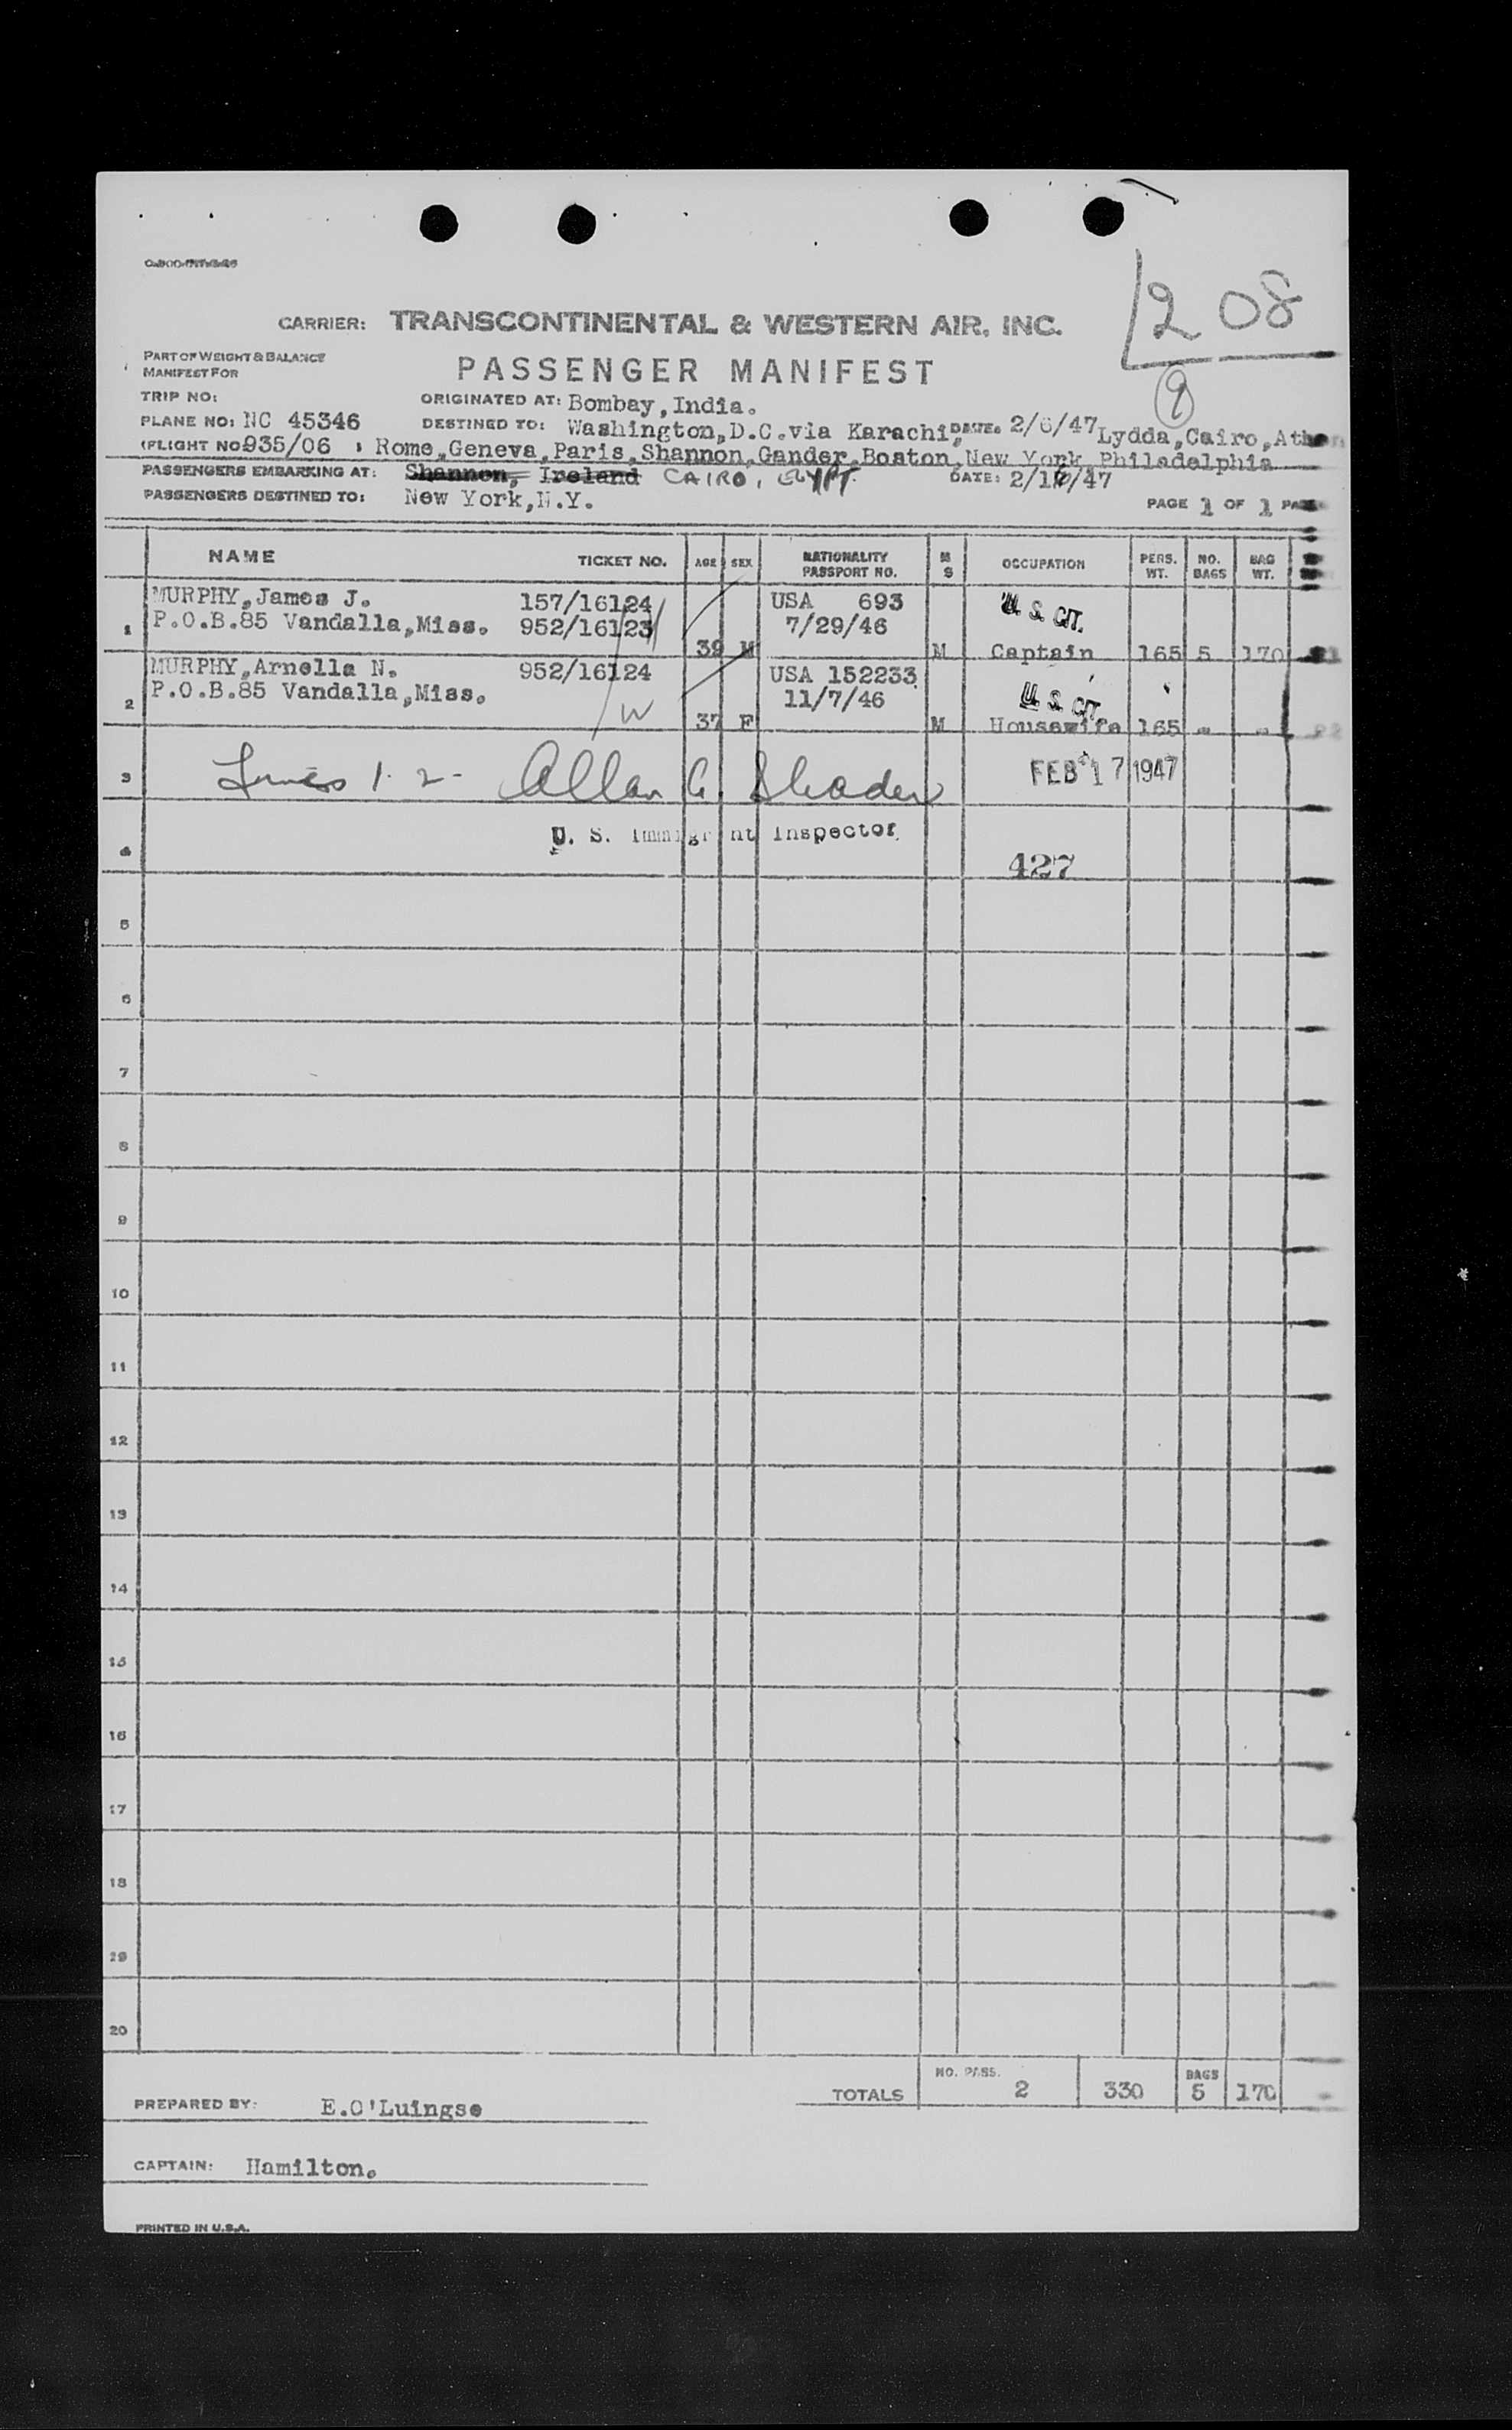 CARRIER: TRANSCONTINENTAL & WESTERN AIR, INC.
208
PART OF WEIGHT & BALANCE
MANIFEST FOR
PASSENGER MANIFEST
9
TRIP NO:
ORIGINATED AT: Bombay, India.
PLANE NO: NC 45346
DESTINED TO: Washington, D.C. via Karachi, DATE: 2/6/47 Lydda, Cairo, Athen
(FLIGHT NO 935/06 ) Rome, Geneva, Paris, Shannon, Gander, Boston, New York, Philadelphia
PASSENGERS EMBARKING AT: Shannon, Ireland CAIRO, EGYPT. DATE: 2/16/47
PASSENGERS DESTINED TO: New York, N.Y.
PAGE 1 OF 1
NAME TICKET NO. AGE SEX NATIONALITY PASSPORT NO. M S OCCUPATION PERS. WT. NO. BAGS BAG WT.
MURPHY, James J. 157/16124 USA 693 U. S. CIT.
1 P.O.B.85 Vandalla, Miss. 952/16123 7/29/46
39 M M Captain 165 5 170
MURPHY, Arnella N. 952/16124 USA 152233
2 P.O.B.85 Vandalla, Miss. 11/7/46 U. S. CIT.
W 37 F M Housewife 165 " "
3 Lines 1-2- Allan G. Shader FEB 17 1947
U. S. Immigrant Inspector
4 427
5
6
7
8
9
10
11
12
13
14
15
16
17
18
19
20
TOTALS NO. PASS. 2 330 BAGS 5 170
PREPARED BY: E.O'Luingse
CAPTAIN: Hamilton.
PRINTED IN U.S.A.